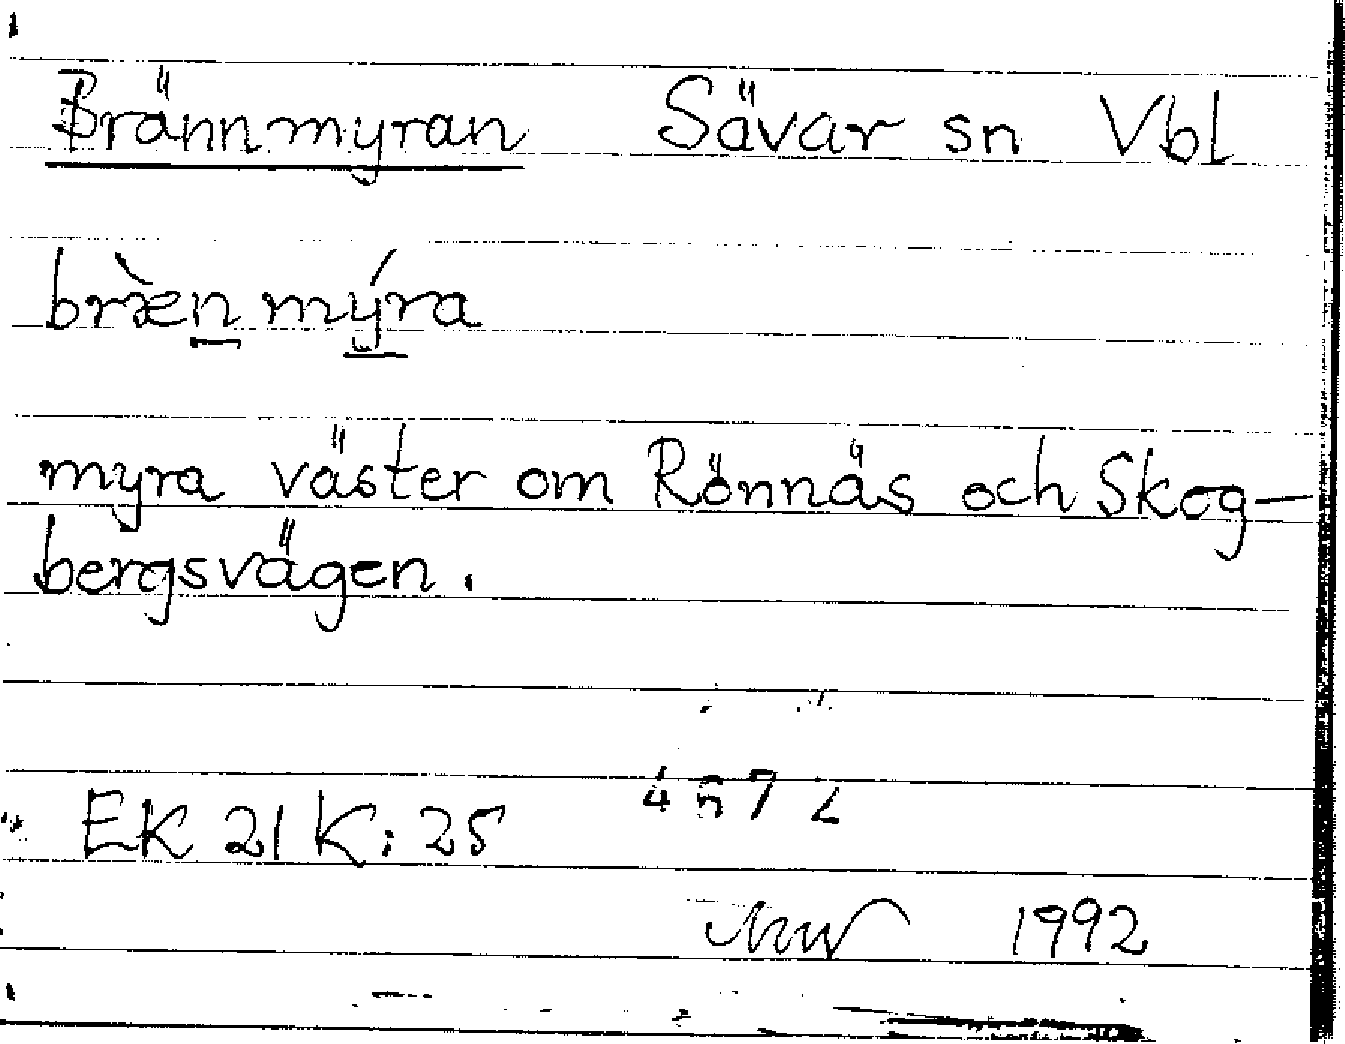 Brännmyran Sävar sn Vbl
bræ̀nmýra
myra väster om Rönnäs och Skog-
bergsvägen.
EK 21 K: 25
1992